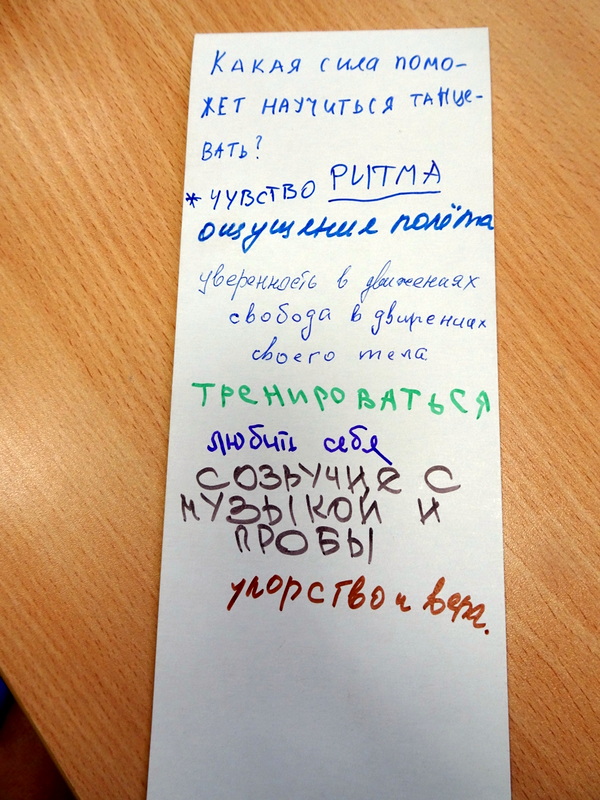 Какая сила помо-
жет научиться танце-
вать?
* чувство РИТМА
ощущение полёта
уверенность в движениях
свобода в движениях
своего тела
ТРЕНИРОВАТЬСЯ
любить себя
СОЗВУЧИЕ С
МУЗЫКОЙ И
ПРОБЫ
упорство и вера.